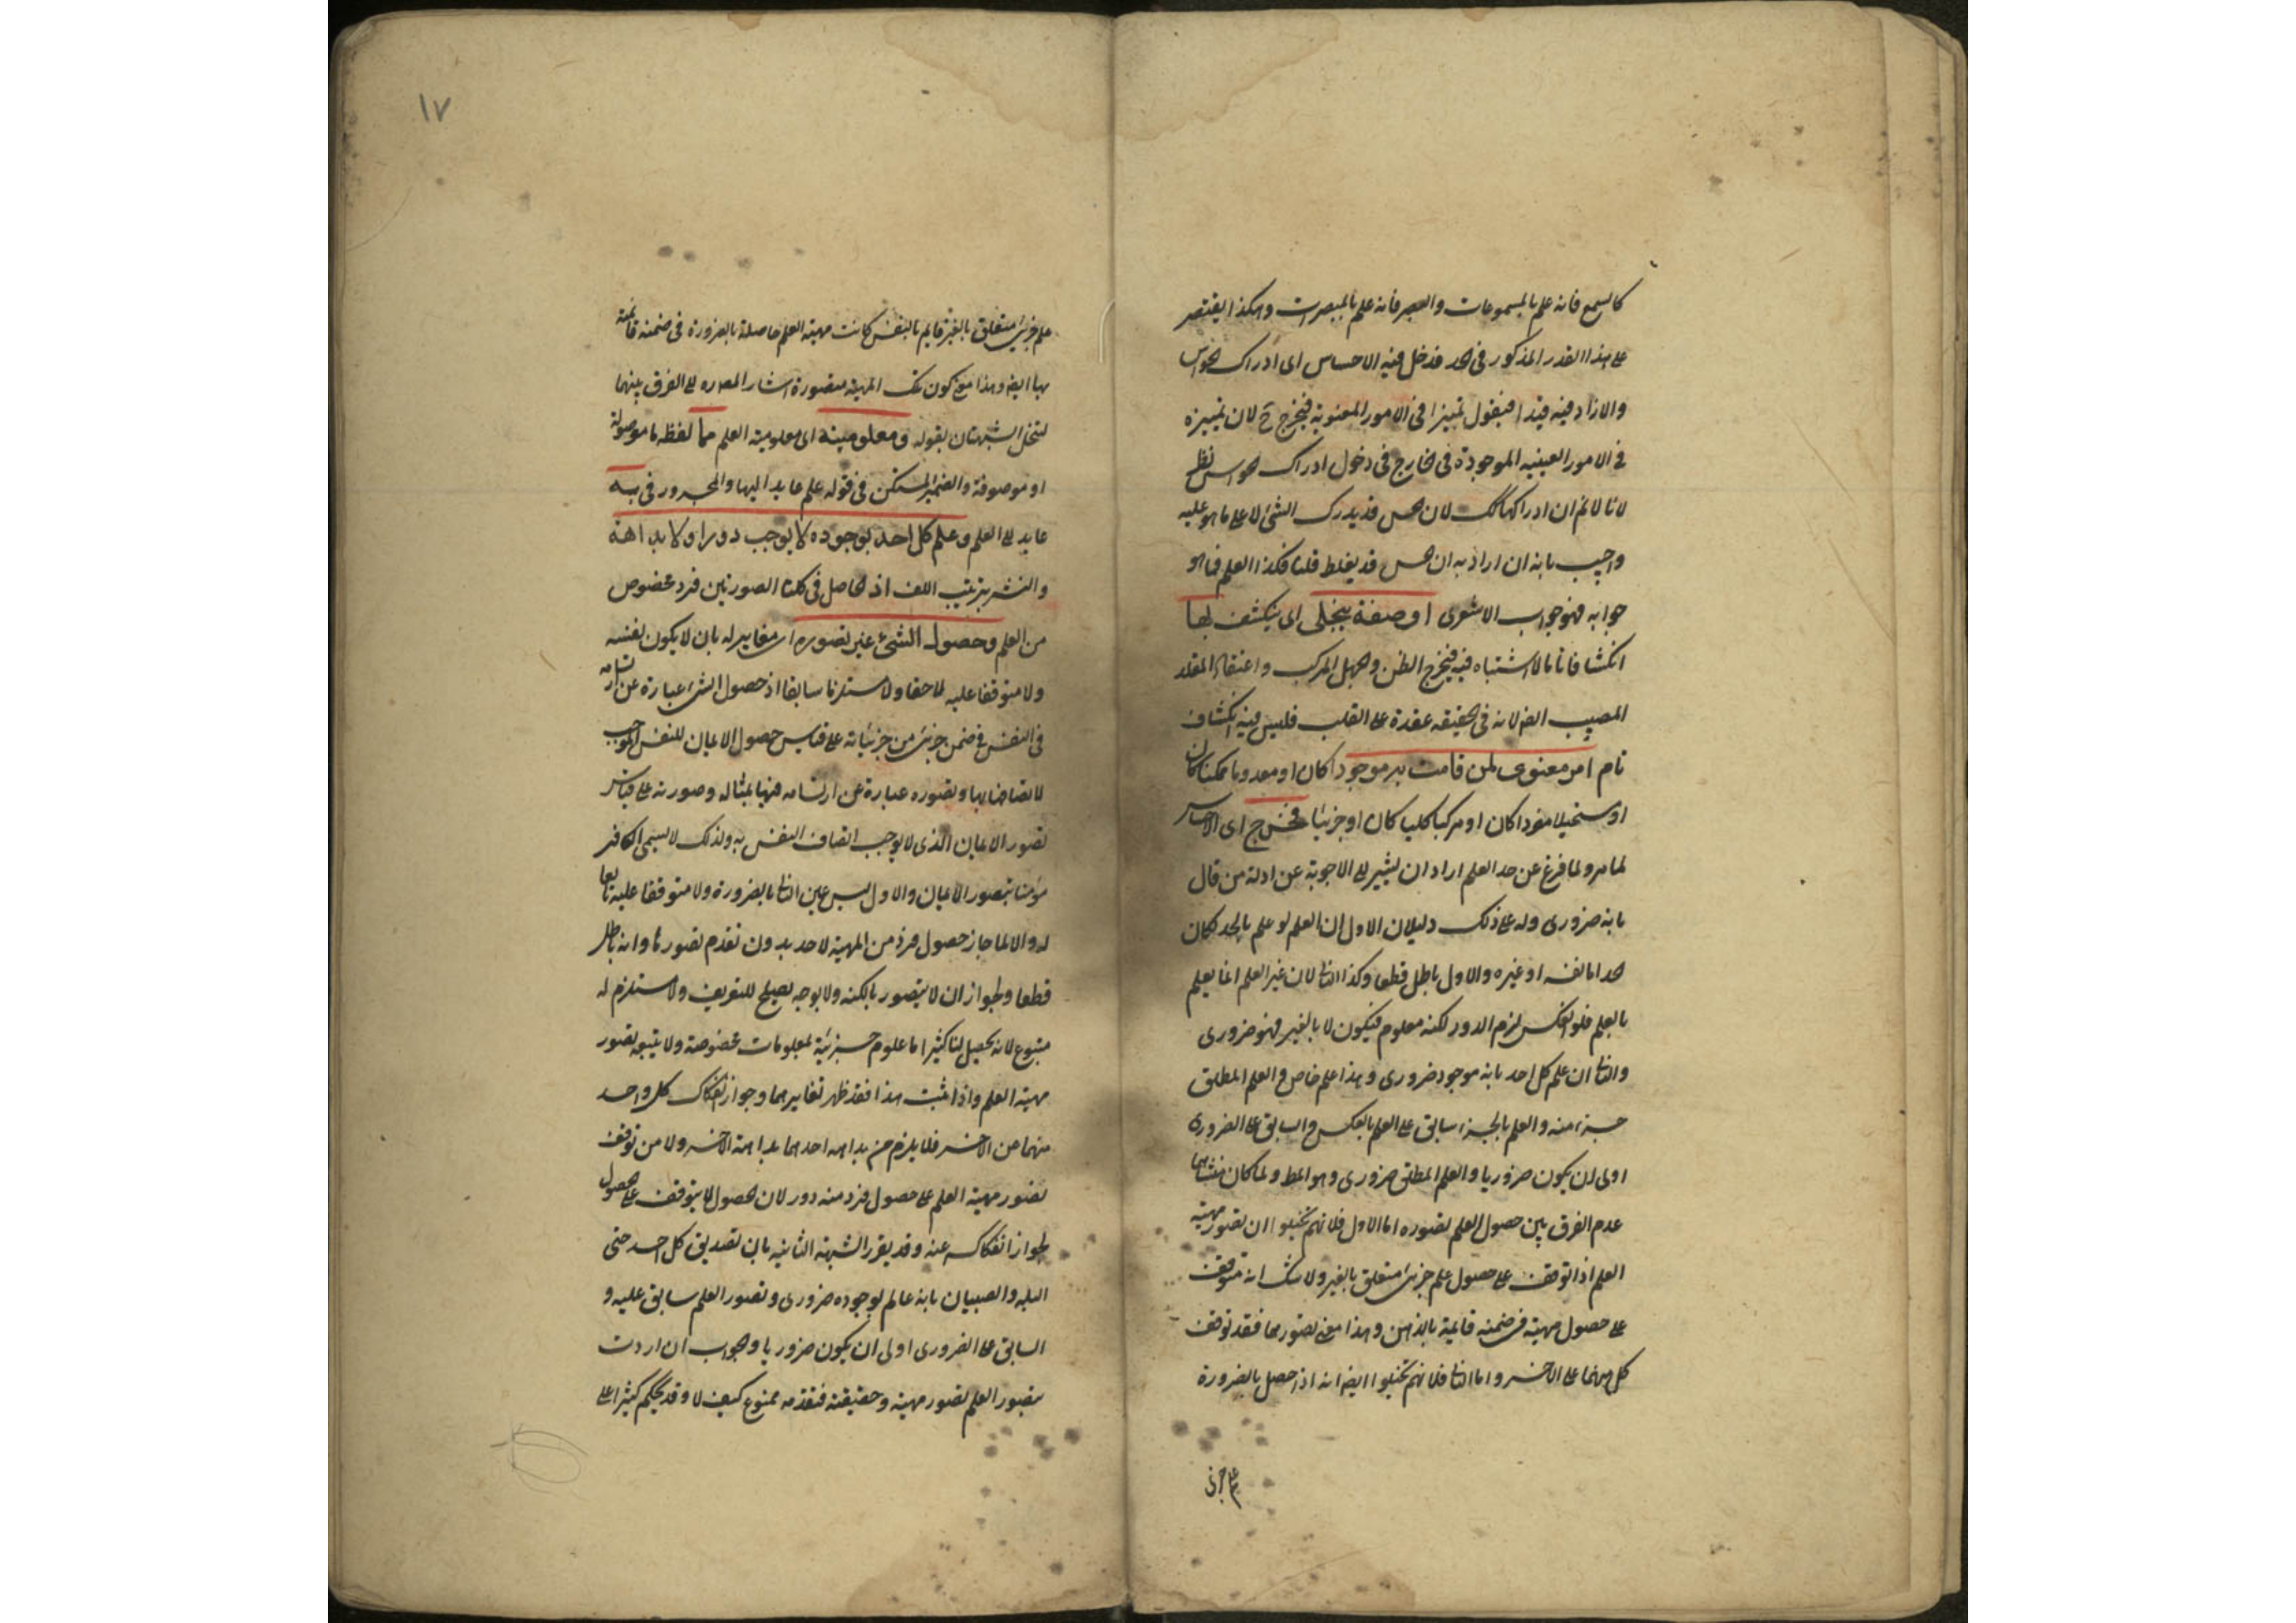 كالسمع فانه علم بالمسموعات والبصر فانه علم بالمبصرات وهكذا يقتصر
على هذا القدر المذكور في الحد فدخل فيه الاحساس اى ادراك الحواس
والا زاد فيه قيدا فيقول تمييزا في الامور المعنوية فيخرج ح لان تمييزه
في الامور العينيه الموجودة في الخارج في دخول ادراك الحواس نظر
لانا لا نم ان ادراكها كك لان الحس قد يدرك الشئ لا على ما هو عليه
واجيب بانه ان اراد به ان الحس قد يغلط قلنا فكذا العلم فما هو
جوابه فهو جواب الاشعرى او صفة يتجلى اى ينكشف لها
انكشافا تاما لا اشتباه فيه فيخرج الظن والجهل المركب واعتقاد المقلد
المصيب ايضا لانه في الحقيقه عقدة على القلب فليس فيه انكشاف
تام امر معنوى لمن قامت به موجودا كان او معدوما ممكنا كان
او مستحيلا مفردا كان او مركبا كليا كان او جزئيا فخرج اى الاحساس
لما مر ولما فرغ عن حد العلم اراد ان يشير الى الاجوبة عن ادلة من قال
بانه ضرورى وله على ذلك دليلان الاول ان العلم لو علم بالحد لكان
الحد اما نفسه او غيره والاول باطل قطعا وكذا الثانى لان غير العلم انما يعلم
بالعلم فلو انعكس لزم الدور لكنه معلوم فيكون لا بالغير فهو ضرورى
والثانى ان علم كل احد بانه موجود ضرورى وهذا علم خاص والعلم المطلق
جزء منه والعلم بالجزء سابق على العلم بالكل والسابق على الضرورى
اولى ان يكون ضروريا والعلم المطلق ضرورى وهو المط ولما كان منشاهما
عدم الفرق بين حصول العلم تصوره اما الاول فلانهم تخيلوا ان تصور مهية
العلم اذا توقف على حصول علم جزئى متعلق بالغير ولا شك انه متوقف
على حصول مهية في ضمنه قايمة بالذهن وهذا معنى تصورها فقد توقف
كل منهما على الاخر واما الثانى فلانهم تخيلوا ايضا انه اذا حصل بالضرورة
علم جزئى
١٧
علم جزئى متعلق بالغير قايم بالنفس كانت مهية العلم حاصلة بالضرورة في ضمنه قائمة
بها ايضا وهذا معنى كون تلك المهية متصورة اشار المص ره الى الفرق بينهما
لتنحل الشبهتان بقوله ومعلوميته اى معلومية العلم مما لفظه ما موصولة
او موصوفة والضمير المستكن في قوله علم عايد اليها والمجرور في به
عايد الى العلم وعلم كل احد بوجوده لا يوجب دورا ولا بداهة
والنشر بترتيب اللف اذ الحاصل في كلتا الصورتين فرد مخصوص
من العلم وحصول الشئ غير تصوره اى مغاير له بان لا يكون نفسه
ولا متوقفا عليه لاحقا ولا مستلزما سابقا اذ حصول الشئ عبارة عن ارتسامه
في النفس في ضمن جزئى من جزئياته على قياس حصول الايمان للنفس الموجب
لاتصافها بها وتصوره عبارة عن ارتسامه فيها بمثاله وصورته على قياس
تصور الايمان الذى لا يوجب اتصاف النفس به ولذلك لا يسمى الكافر
مؤمنا بتصور الايمان والاول ليس عين الثانى بالضرورة ولا متوقفا عليه تابعا
له والا لما جاز حصول فرد من المهية لاحد بدون تقدم تصورها وانه باطل
قطعا ولجواز ان لا يتصور بالكنه ولا بوجه يصلح للتعريف ولا مستلزم له
متبوع لانه يحصل لنا كثيرا ما علوم جزئية لمعلومات مخصوصة ولا يتبعه تصور
مهية العلم واذا ثبت هذا فقد ظهر تغايرهما وجواز انفكاك كل واحد
منهما من الاخر فلا يلزم من بداهه احدهما بداهة الاخر ولا من توقف
تصور مهية العلم على حصول فرد منه دور لان الحصول لا يتوقف على الحصول
لجواز انفكاكه عنه وقد يقرر الشبهة الثانيه بان تصديق كل احد حتى
البله والصبيان بانه عالم بوجوده ضرورى وتصور العلم سابق عليه و
السابق على الضرورى اولى ان يكون ضروريا والجواب ان اردت
بتصور العلم تصور مهية وحقيقته فتقدمه ممنوع كيف لا وقد يحكم كثيرا على